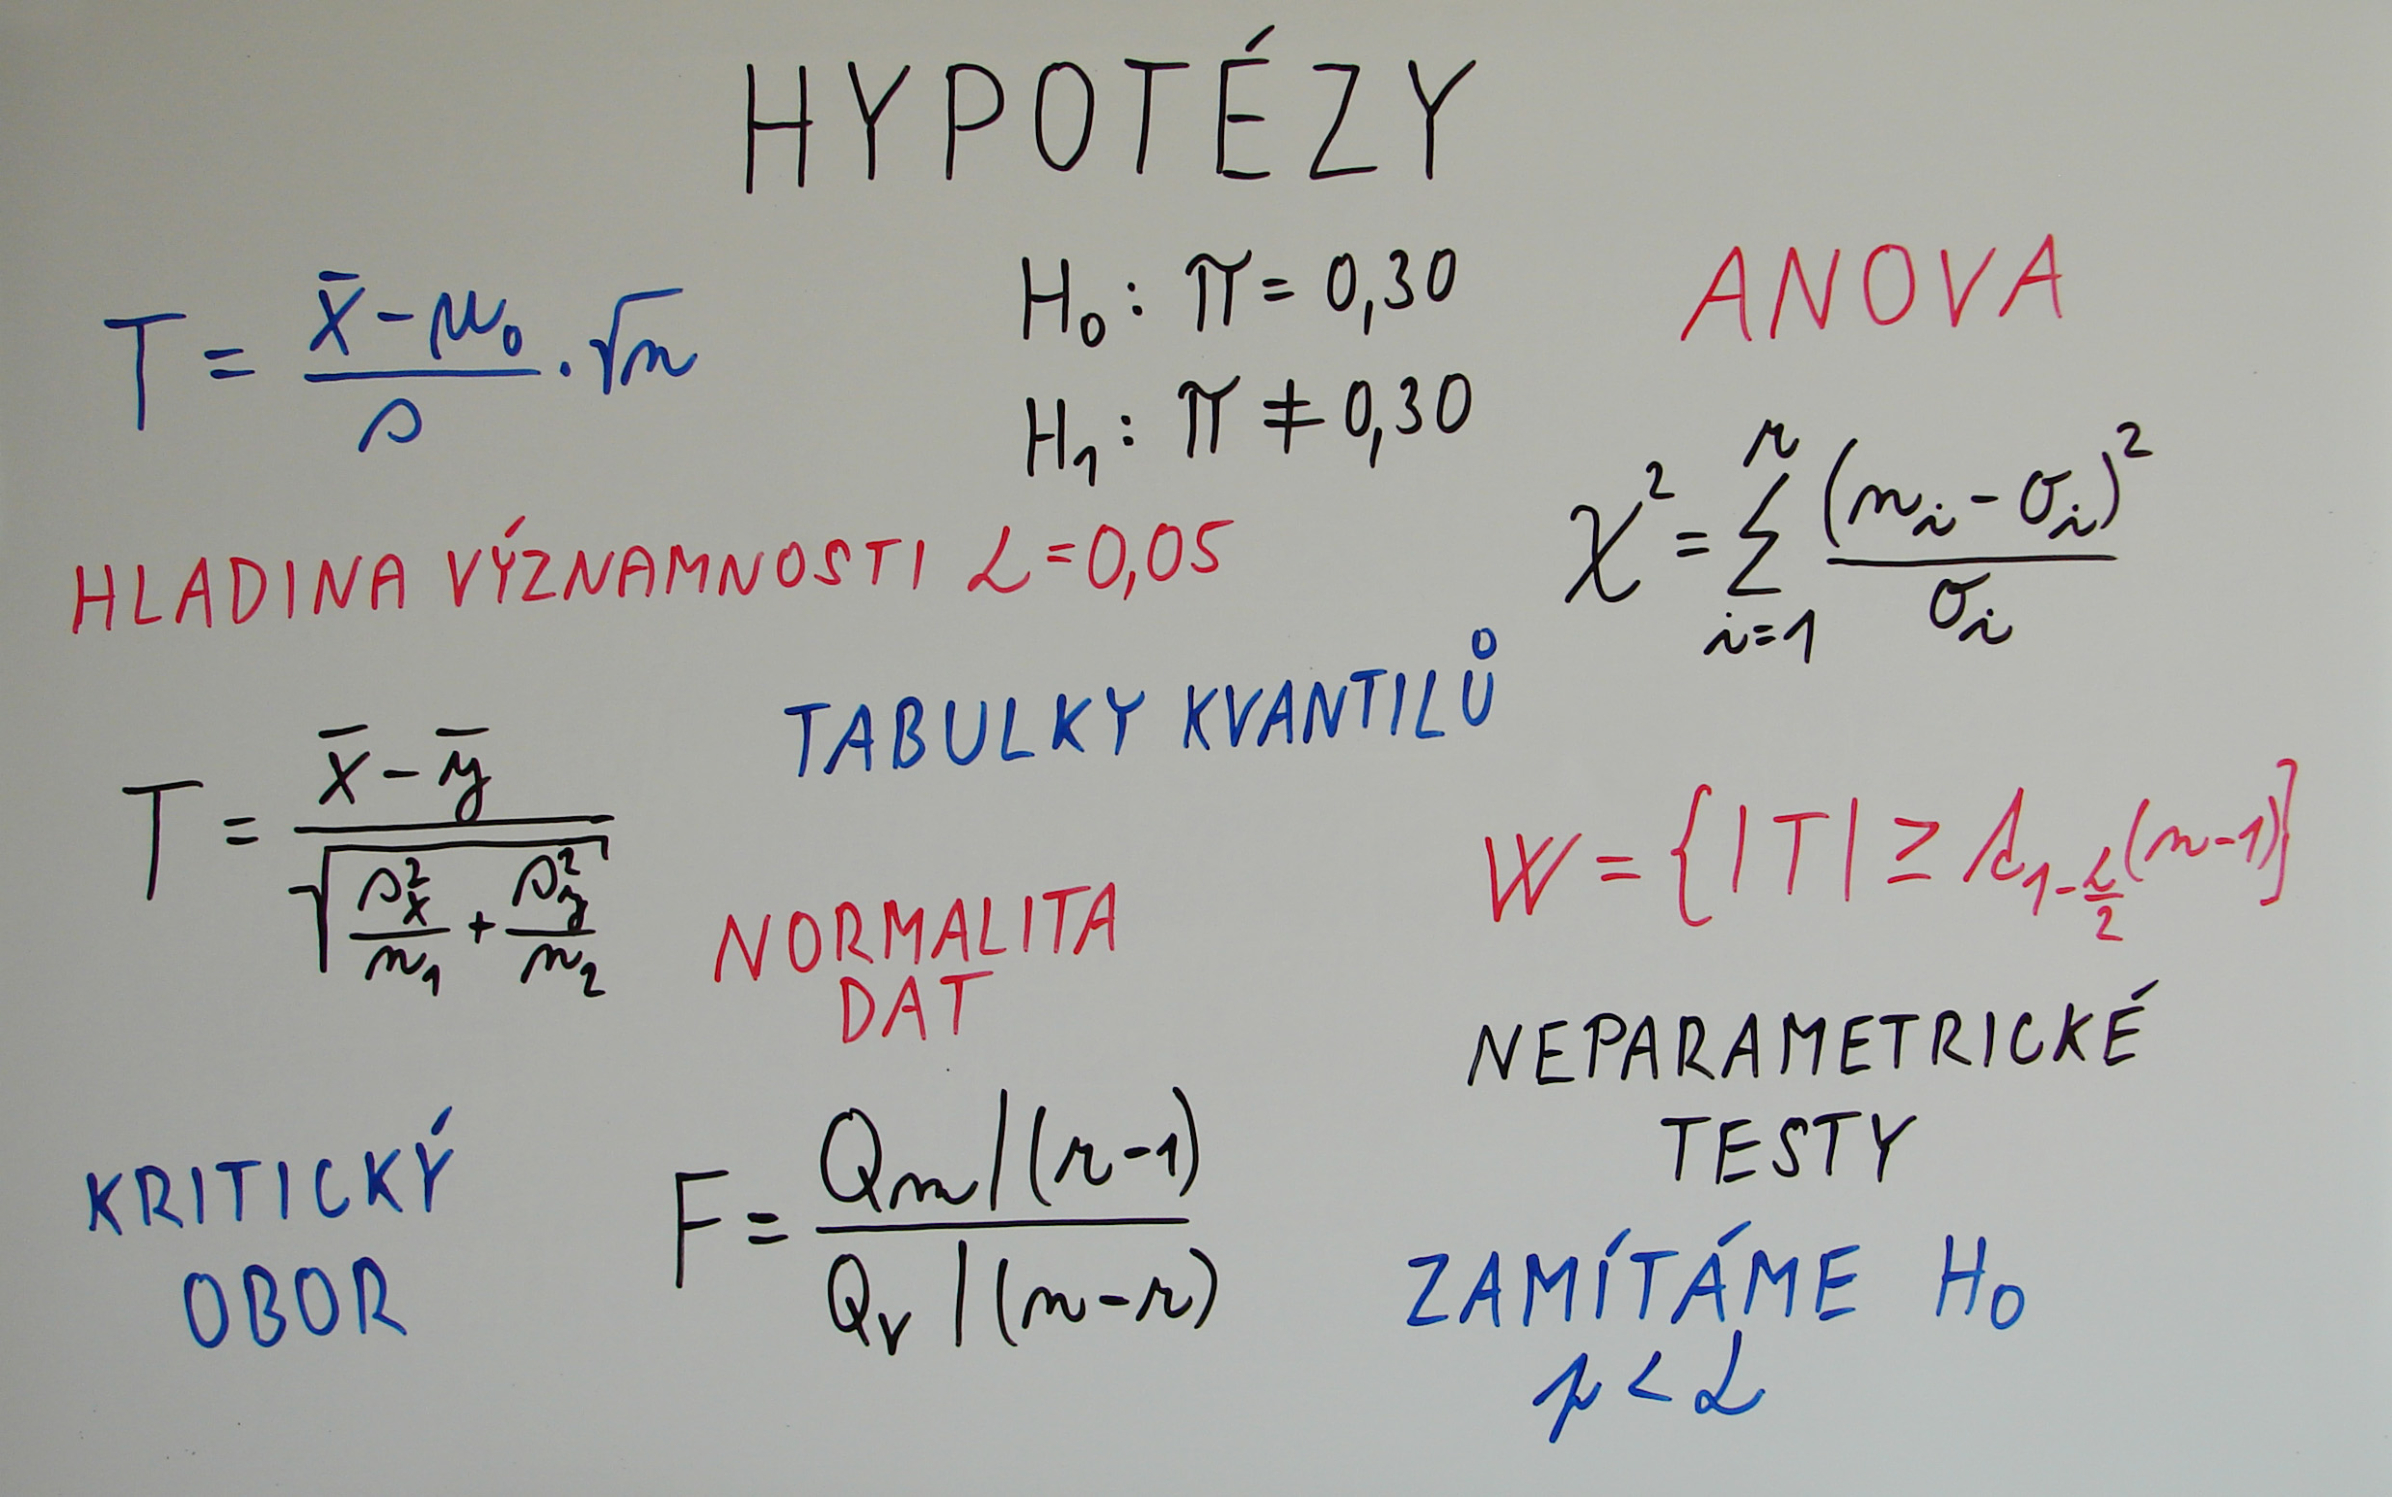 HYPOTÉZY
T = (x̄ - μ₀)/s · √n
H₀: π = 0,30
H₁: π ≠ 0,30
ANOVA
χ² = Σᵢ₌₁ʳ (nᵢ - σᵢ)²/σᵢ
HLADINA VÝZNAMNOSTI α = 0,05
TABULKY KVANTILŮ
T = (x̄ - ȳ)/√(sₓ²/n₁ + s_y²/n₂)
W = {|T| ≥ t_{1-α/2}(n-1)}
NORMALITA
DAT
NEPARAMETRICKÉ
TESTY
KRITICKÝ
OBOR
F = (Qₘ/(r-1))/(Qᵥ/(n-r))
ZAMÍTÁME H₀
p < α